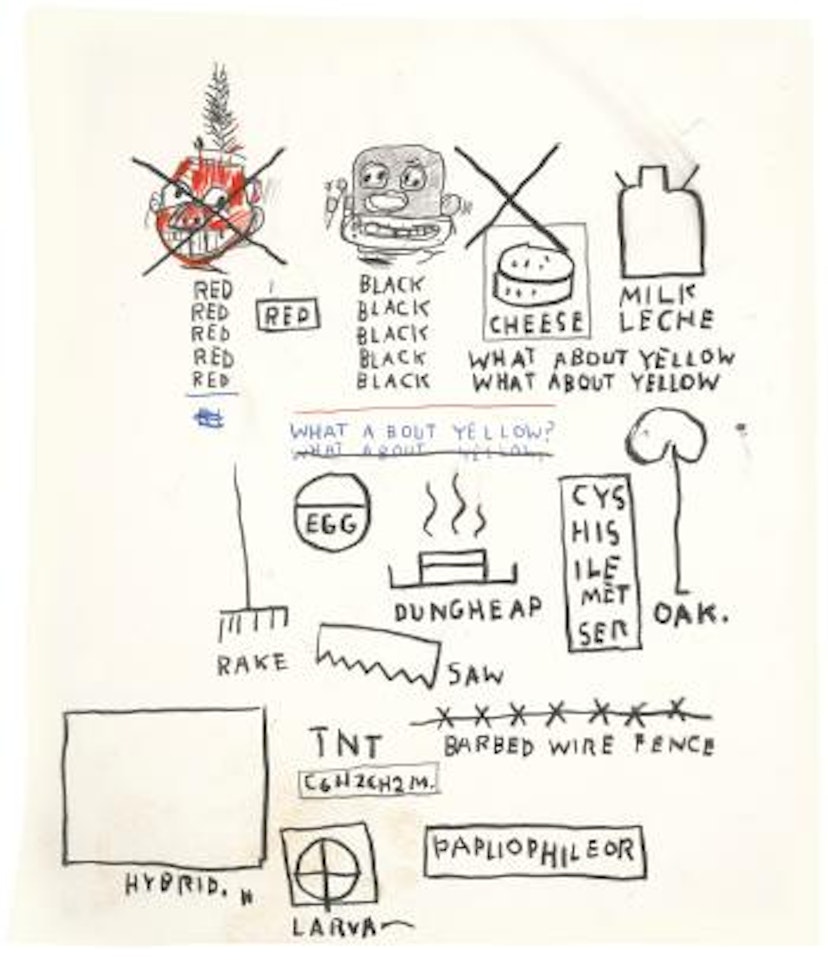 RED
RED
RED
RED
RED
RED
BLACK
BLACK
BLACK
BLACK
BLACK
CHEESE
MILK
LECHE
WHAT ABOUT YELLOW
WHAT ABOUT YELLOW
WHAT ABOUT YELLOW?
WHAT ABOUT YELLOW
EGG
DUNGHEAP
CYS
HIS
ILE
MET
SER
OAK.
RAKE
SAW
TNT
C6H2CH2M.
BARBED WIRE FENCE
HYBRID.
LARVA
PAPLIOPHILEOR